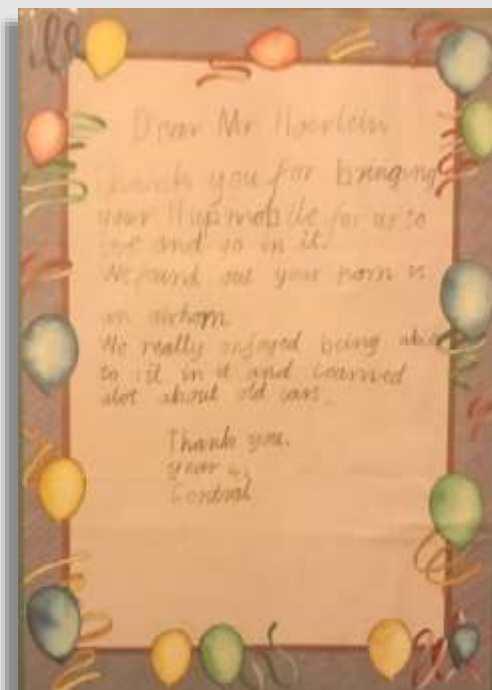 Dear Mr Hoerlein
Thank you for bringing
your Hupmobile for us to
see and go in it.
We found out your horn is
an airhorn
We really enjoyed being able
to sit in it and learned
alot about old cars.
Thank you.
year 4,
Central